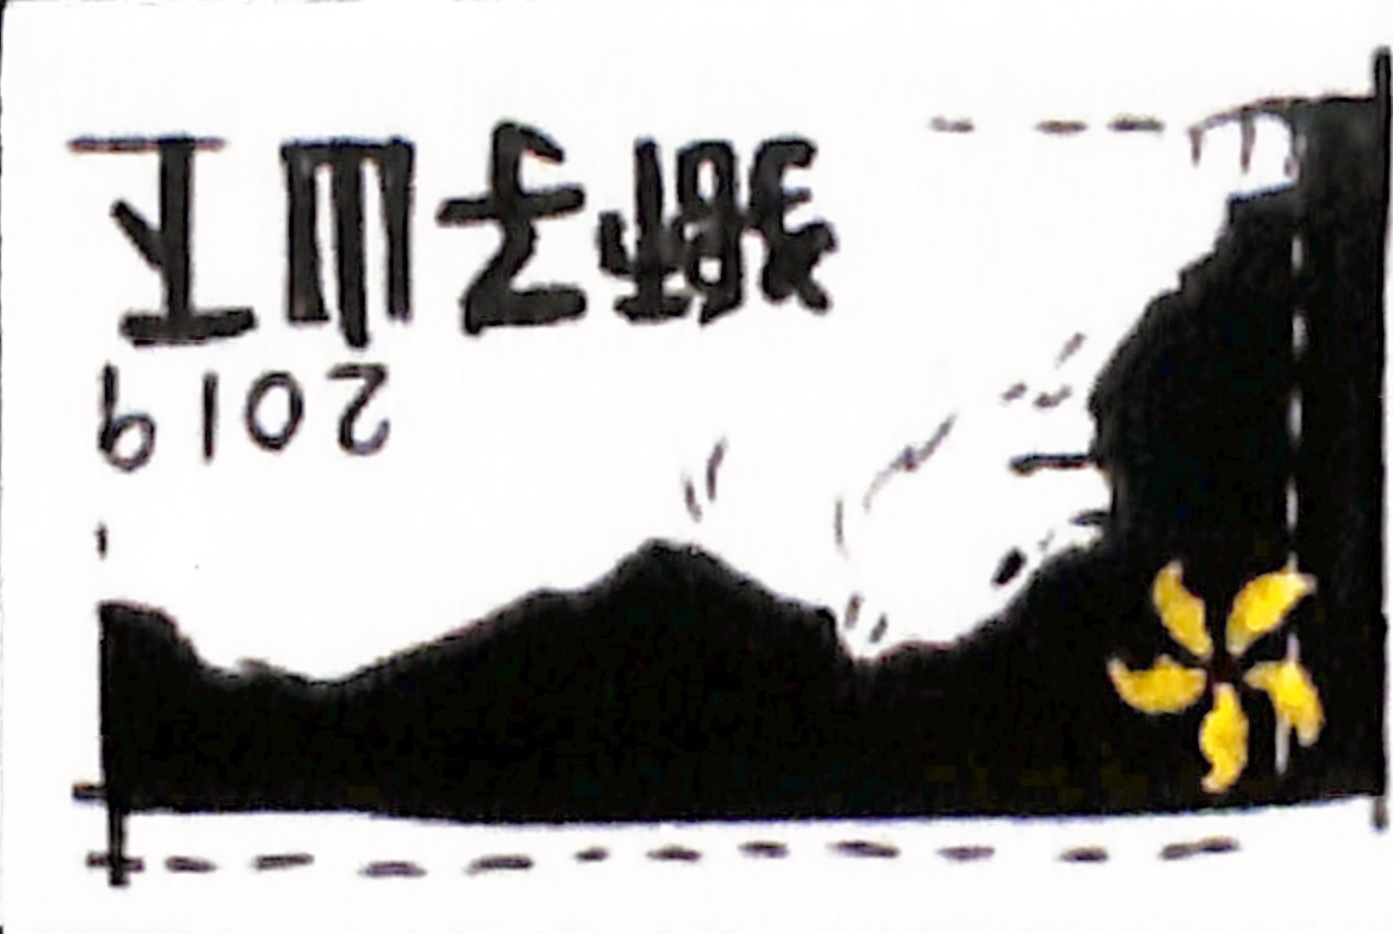 2019
獅子山下